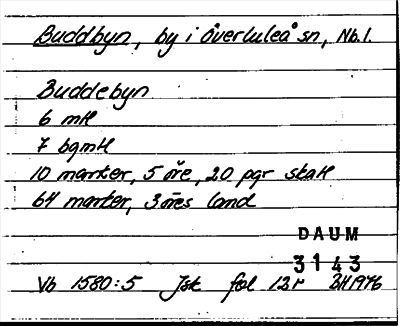 Buddbyn, by i Överluleå sn, Nb.l.
Buddebyn
6 mtl
7 bgmtl
10 marker, 5 öre, 20 pgr skatt
64 marker, 3 öres land
DAUM
3143
Vb 1580:5 Jsk fol 12r BH1976